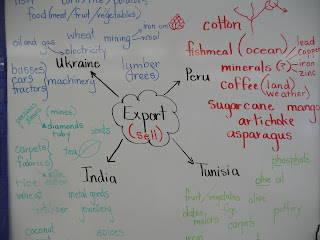 food (meat/fruit/vegetables)
wheat
mining
iron ore
coal
oil and gas
electricity
Ukraine
busses
cars
tractors
machinery
lumber
(trees)
cotton
fishmeal (ocean)
minerals (?)
lead
copper
iron
zinc
Peru
coffee (land)
weather
sugarcane mango
artichoke
asparagus
Export
(sell)
precious stones
(mines)
diamonds
ruby
seeds
carpets
fabrics
tea
silk
cotton
rice
wheat
metal goods
jewellery
coconut
spices
India
Tunisia
phosphate
olive oil
fruit/vegetables
olive
dates
figs
melons
carpets
pottery